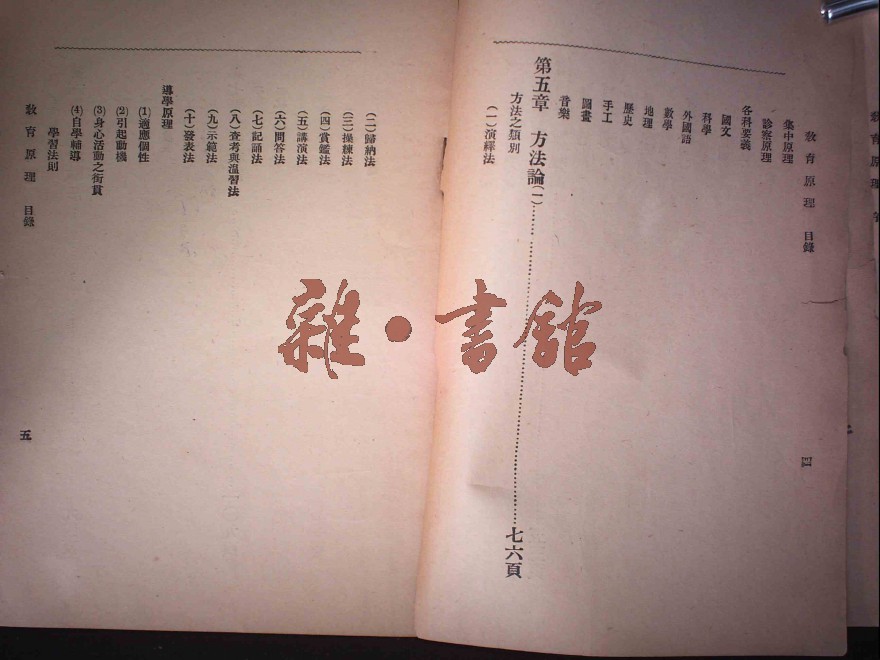 教育原理 目錄
集中原理
診察原理
各科要義
國文
科學
外國語
數學
地理
歷史
手工
圖畫
音樂
第五章 方法論(一)……七六頁
方法之類別
(一)演繹法
四
(二)歸納法
(三)操練法
(四)賞鑑法
(五)講演法
(六)問答法
(七)記誦法
(八)查考與溫習法
(九)示範法
(十)發表法
導學原理
(1)適應個性
(2)引起動機
(3)身心活動之銜貫
(4)自學輔導
學習法則
教育原理 目錄
五
雜·書館